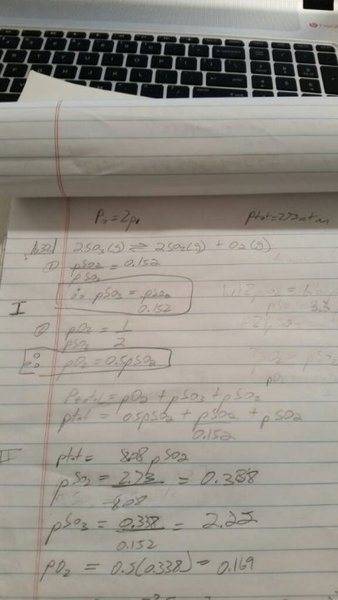 P₂ = 2p₁ ptot = 2.73 atm
2SO₃(g) ⇌ 2SO₂(g) + O₂(g)
① pSO₂ / pSO₃ = 0.152
I
∴ pSO₃ = pSO₂ / 0.152
② pO₂ / pSO₂ = 1 / 2
∴ pO₂ = 0.5pSO₂
Ptotal = pO₂ + pSO₃ + pSO₂
ptot = 0.5pSO₂ + pSO₂ / 0.152 + pSO₂
II
ptot = 8.08 pSO₂
pSO₂ = 2.73 / 8.08 = 0.338
pSO₃ = 0.338 / 0.152 = 2.22
pO₂ = 0.5(0.338) = 0.169